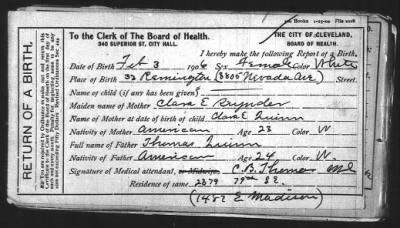 To the Clerk of The Board of Health. THE CITY OF CLEVELAND,
340 SUPERIOR ST., CITY HALL. BOARD OF HEALTH.
I hereby make the following Report of a Birth.
RETURN OF A BIRTH.
Date of Birth Feb 3 1906 Sex Female White
Place of Birth 32 Remington (3805 Nevada Ave) Street.
Name of child (if any has been given)
Maiden name of Mother Clara E
Name of Mother at date of birth of child Clara E Quinn
Nativity of Mother American Age 23 Color W
Full name of Father Thomas Quinn
Nativity of Father American Age 24 Color W.
Signature of Medical attendant or Midwife, C. B. Thomas MD
Residence of same 2379 79th S.E.
(1482 E Madison)